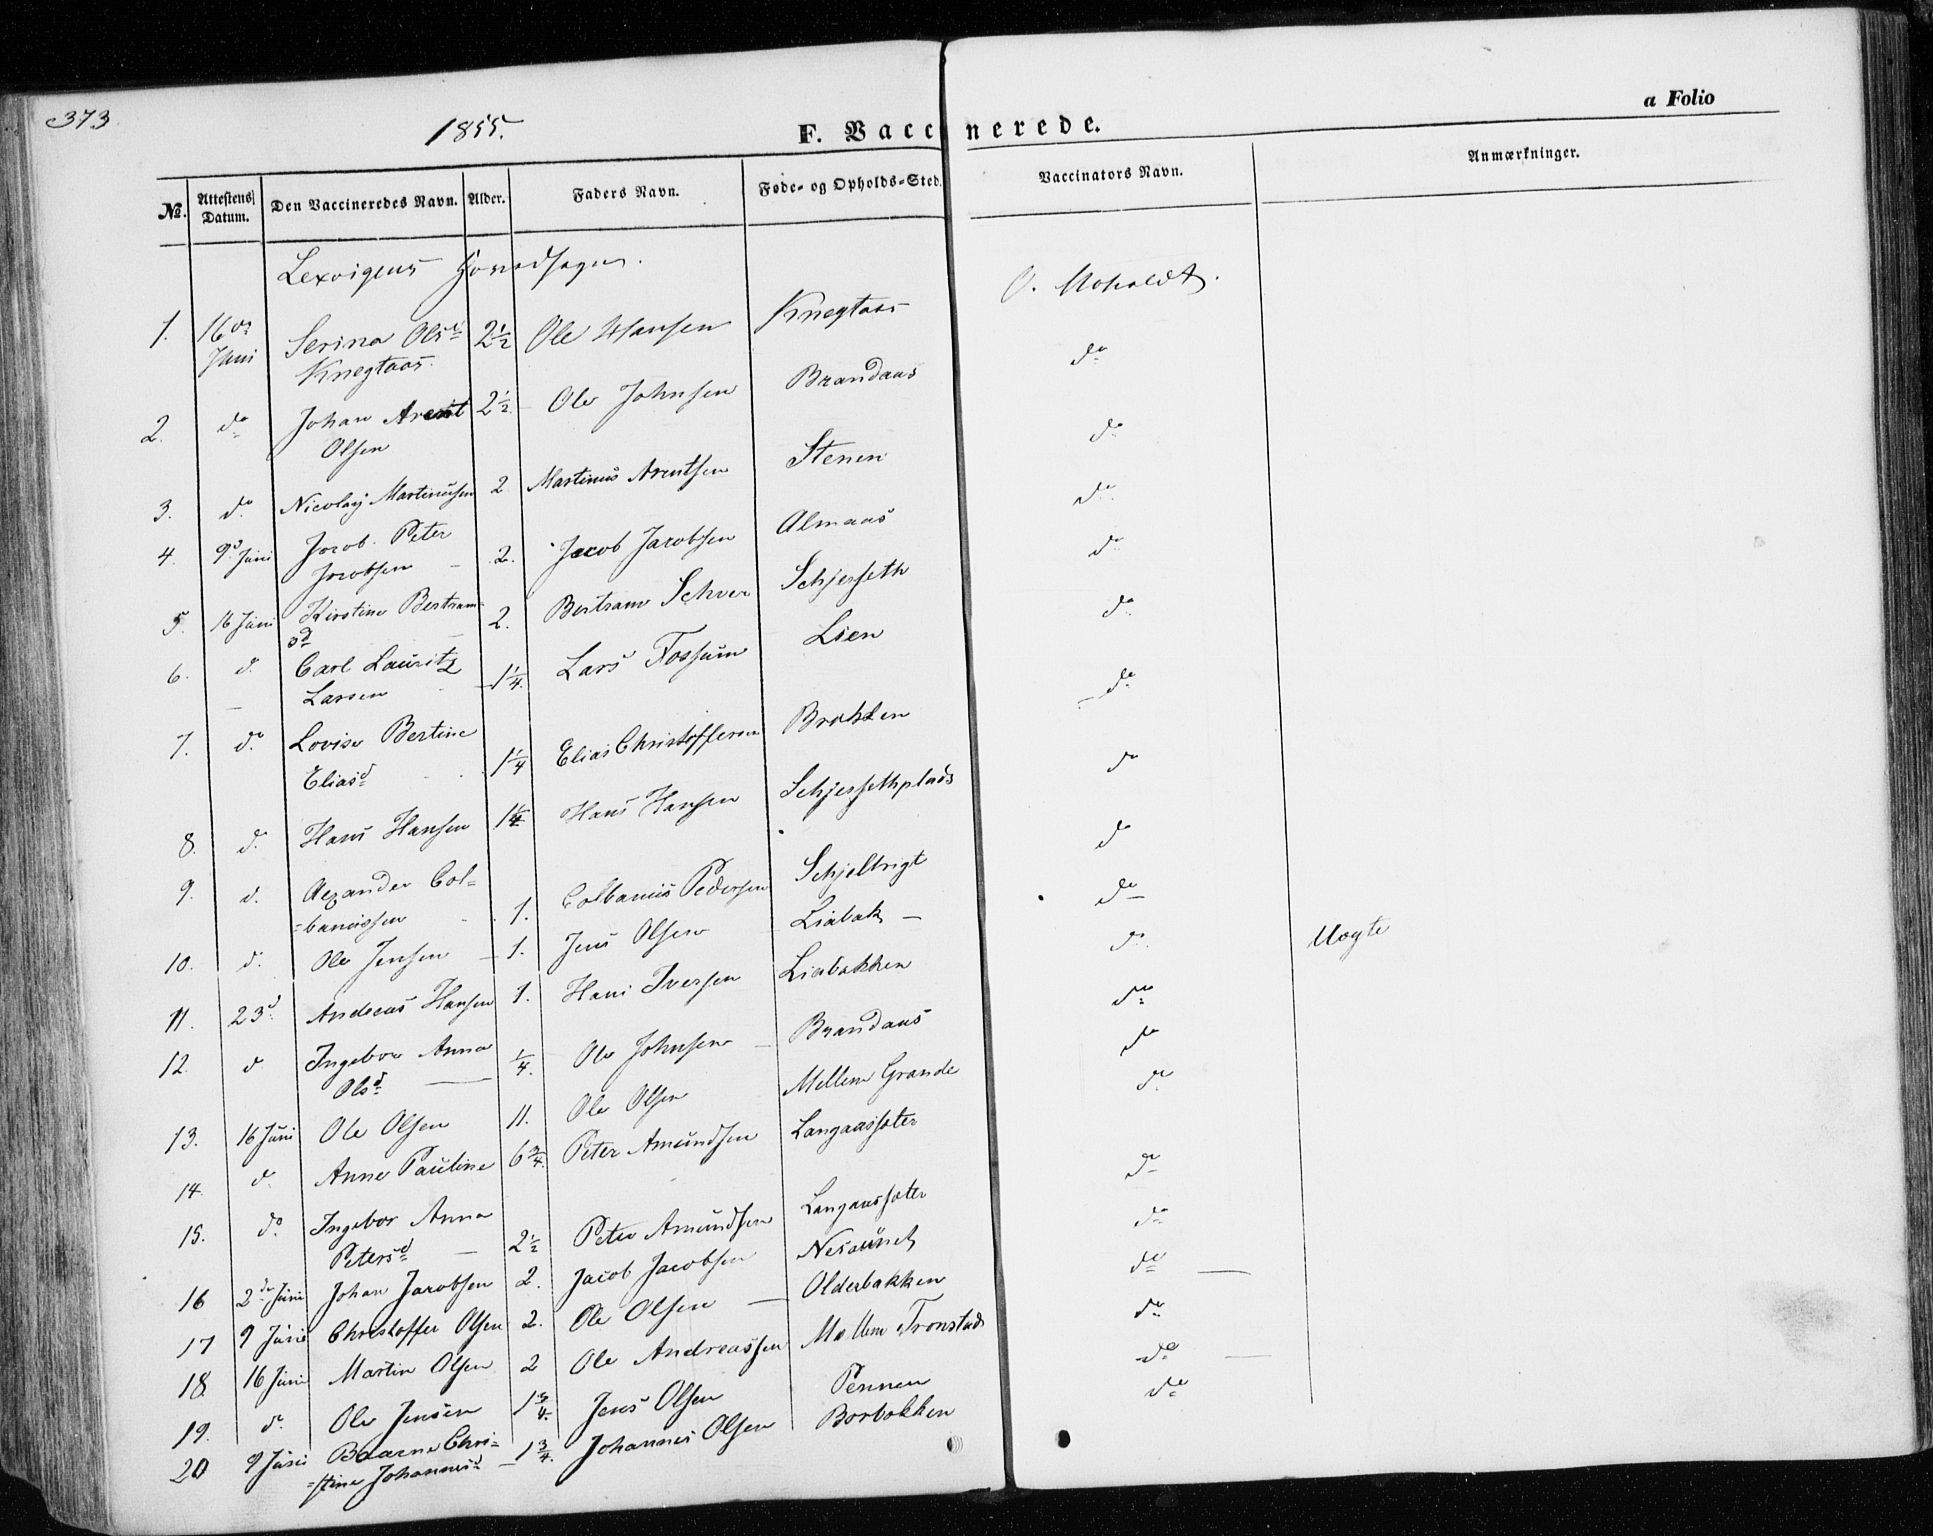 373
1855.
F. Vaccinerede.
a Folio
No. Attestens Datum. Den Vaccineredes Navn. Alder. Faders Navn. Føde- og Opholds-Sted. Vaccinators Navn. Anmærkninger.
Lexvigens Hovedsogn.
1. 16de Juni Serina Olsd 2½ Ole Hansen Knegtaas O. Moholdt.
Knegtaas.
2. do Johan Arent 2½ Ole Johnsen Brandaas do
Olsen
3. do Nicolay Martinussen 2 Martinus Arentsen Stenen do
4. 9d Juni Jacob Peter
Jacobsen 2. Jacob Jacobsen Almaas do
5. 16 Juni Kirstine Bertram-
sd 2. Bertram Schver Schjerseth do
6. d. Carl Lauritz
Larsen 1¼ Lars Fossum Lien do
7. do Lovise Bertine
Eliasd 1¼ Elias Christoffersen Brakken do
8. d. Hans Hansen 1¼ Hans Hansen Schjersethplads do
9. d. Alexander Col-
-banussen 1. Colbanus Pedersen Schjelbrigt do
10. d. Ole Jensen 1. Jens Olsen Liabak do
11. 23d Andreas Hansen 1. Hans Iversen Liabakken do Uægte
12. d Ingebor Anna ¼ Ole Johnsen Brandaas do
Olsd
13. 16 Juni Ole Olsen 11. Ole Olsen Mellem Grande do
14. d. Anne Pauline 6¾ Peter Amundsen Langaassæter do
15. do Ingebor Anna
Petersd 2½ Peter Amundsen Langaassæter do
16 2de Juni Johan Jacobsen 2. Jacob Jacobsen Nesaunet do
17 9 Juni Christoffer Olsen 2. Ole Olsen Olderbakken do
18. 16 Juni Martin Olsen 2 Ole Andreassen Mellem Tronstad do
19. do Ole Jensen 1¾ Jens Olsen Pennen do
20 9 Juni Baarne Chri-
-stine Johannesd 1¾ Johannes Olsen Borbakken do